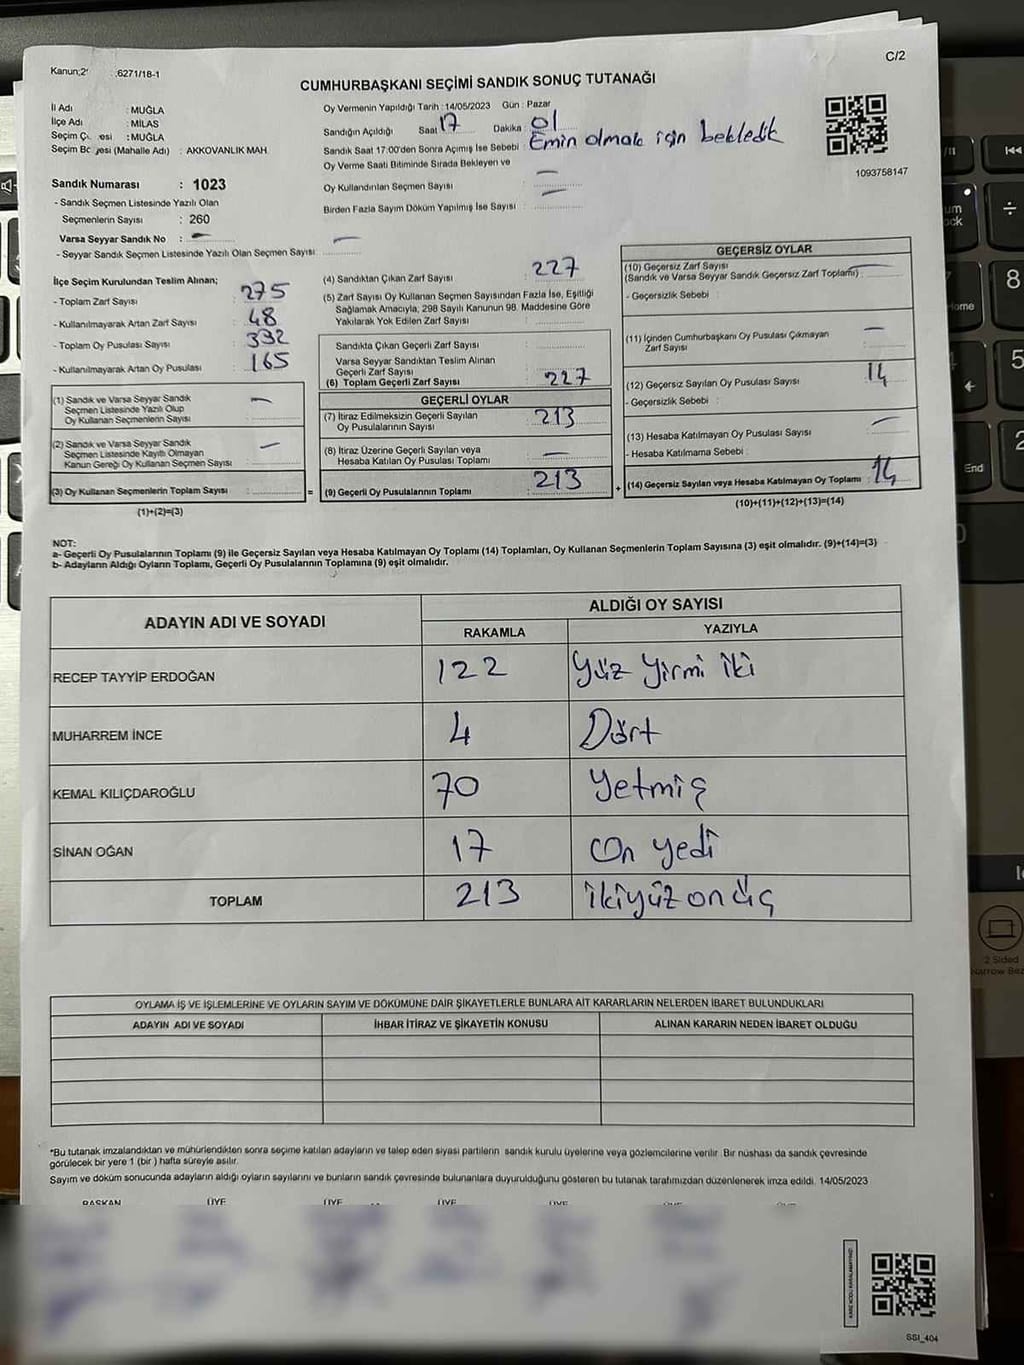 C/2
Kanun;2 .6271/18-1
CUMHURBAŞKANI SEÇİMİ SANDIK SONUÇ TUTANAĞI
İl Adı : MUĞLA
İlçe Adı : MİLAS
Seçim Ç. esi : MUĞLA
Seçim Bö jesi (Mahalle Adı) : AKKOVANLIK MAH.
Oy Vermenin Yapıldığı Tarih : 14/05/2023 Gün : Pazar
Sandığın Açıldığı Saat 17 Dakika : 01
Sandık Saat 17:00'den Sonra Açımış İse Sebebi : Emin olmak için bekledik
Oy Verme Saati Bitiminde Sırada Bekleyen ve
Oy Kullandırılan Seçmen Sayısı : —
Birden Fazla Sayım Döküm Yapılmış İse Sayısı : —
1093758147
Sandık Numarası : 1023
- Sandık Seçmen Listesinde Yazılı Olan
Seçmenlerin Sayısı : 260
Varsa Seyyar Sandık No : —
- Seyyar Sandık Seçmen Listesinde Yazılı Olan Seçmen Sayısı : —
İlçe Seçim Kurulundan Teslim Alınan;
- Toplam Zarf Sayısı : 275
- Kullanılmayarak Artan Zarf Sayısı : 48
- Toplam Oy Pusulası Sayısı : 332
- Kullanılmayarak Artan Oy Pusulası : 165
(1) Sandık ve Varsa Seyyar Sandık
Seçmen Listesinde Yazılı Olup
Oy Kullanan Seçmenlerin Sayısı : —
(2) Sandık ve Varsa Seyyar Sandık
Seçmen Listesinde Kayıtlı Olmayan
Kanun Gereği Oy Kullanan Seçmen Sayısı : —
(3) Oy Kullanan Seçmenlerin Toplam Sayısı :
(1)+(2)=(3)
(4) Sandıktan Çıkan Zarf Sayısı : 227
(5) Zarf Sayısı Oy Kullanan Seçmen Sayısından Fazla İse, Eşitliği
Sağlamak Amacıyla, 298 Sayılı Kanunun 98. Maddesine Göre
Yakılarak Yok Edilen Zarf Sayısı :
Sandıkta Çıkan Geçerli Zarf Sayısı :
Varsa Seyyar Sandıktan Teslim Alınan
Geçerli Zarf Sayısı :
(6) Toplam Geçerli Zarf Sayısı : 227
GEÇERLİ OYLAR
(7) İtiraz Edilmeksizin Geçerli Sayılan
Oy Pusulalarının Sayısı : 213
(8) İtiraz Üzerine Geçerli Sayılan veya
Hesaba Katılan Oy Pusulası Toplamı : —
= (9) Geçerli Oy Pusulalarının Toplamı : 213
GEÇERSİZ OYLAR
(10) Geçersiz Zarf Sayısı
(Sandık ve Varsa Seyyar Sandık Geçersiz Zarf Toplamı) : —
- Geçersizlik Sebebi :
(11) İçinden Cumhurbaşkanı Oy Pusulası Çıkmayan
Zarf Sayısı : —
(12) Geçersiz Sayılan Oy Pusulası Sayısı : 14
- Geçersizlik Sebebi :
(13) Hesaba Katılmayan Oy Pusulası Sayısı : —
- Hesaba Katılmama Sebebi :
+ (14) Geçersiz Sayılan veya Hesaba Katılmayan Oy Toplamı : 14
(10)+(11)+(12)+(13)=(14)
NOT:
a- Geçerli Oy Pusulalarının Toplamı (9) ile Geçersiz Sayılan veya Hesaba Katılmayan Oy Toplamı (14) Toplamları, Oy Kullanan Seçmenlerin Toplam Sayısına (3) eşit olmalıdır. (9)+(14)=(3)
b- Adayların Aldığı Oyların Toplamı, Geçerli Oy Pusulalarının Toplamına (9) eşit olmalıdır.
ADAYIN ADI VE SOYADI
ALDIĞI OY SAYISI
RAKAMLA YAZIYLA
RECEP TAYYİP ERDOĞAN 122 Yüz Yirmi iki
MUHARREM İNCE 4 Dört
KEMAL KILIÇDAROĞLU 70 Yetmiş
SİNAN OĞAN 17 On yedi
TOPLAM 213 ikiyüz onüç
OYLAMA İŞ VE İŞLEMLERİNE VE OYLARIN SAYIM VE DÖKÜMÜNE DAİR ŞİKAYETLERLE BUNLARA AİT KARARLARIN NELERDEN İBARET BULUNDUKLARI
ADAYIN ADI VE SOYADI İHBAR İTİRAZ VE ŞİKAYETİN KONUSU ALINAN KARARIN NEDEN İBARET OLDUĞU
*Bu tutanak imzalandıktan ve mühürlendikten sonra seçime katılan adayların ve talep eden siyasi partilerin sandık kurulu üyelerine veya gözlemcilerine verilir. Bir nüshası da sandık çevresinde
görülecek bir yere 1 (bir) hafta süreyle asılır.
Sayım ve döküm sonucunda adayların aldığı oyların sayılarını ve bunların sandık çevresinde bulunanlara duyurulduğunu gösteren bu tutanak tarafımızdan düzenlenerek imza edildi. 14/05/2023
BAŞKAN ÜYE ÜYE ÜYE ÜYE
SSI_404
End
2 Sided